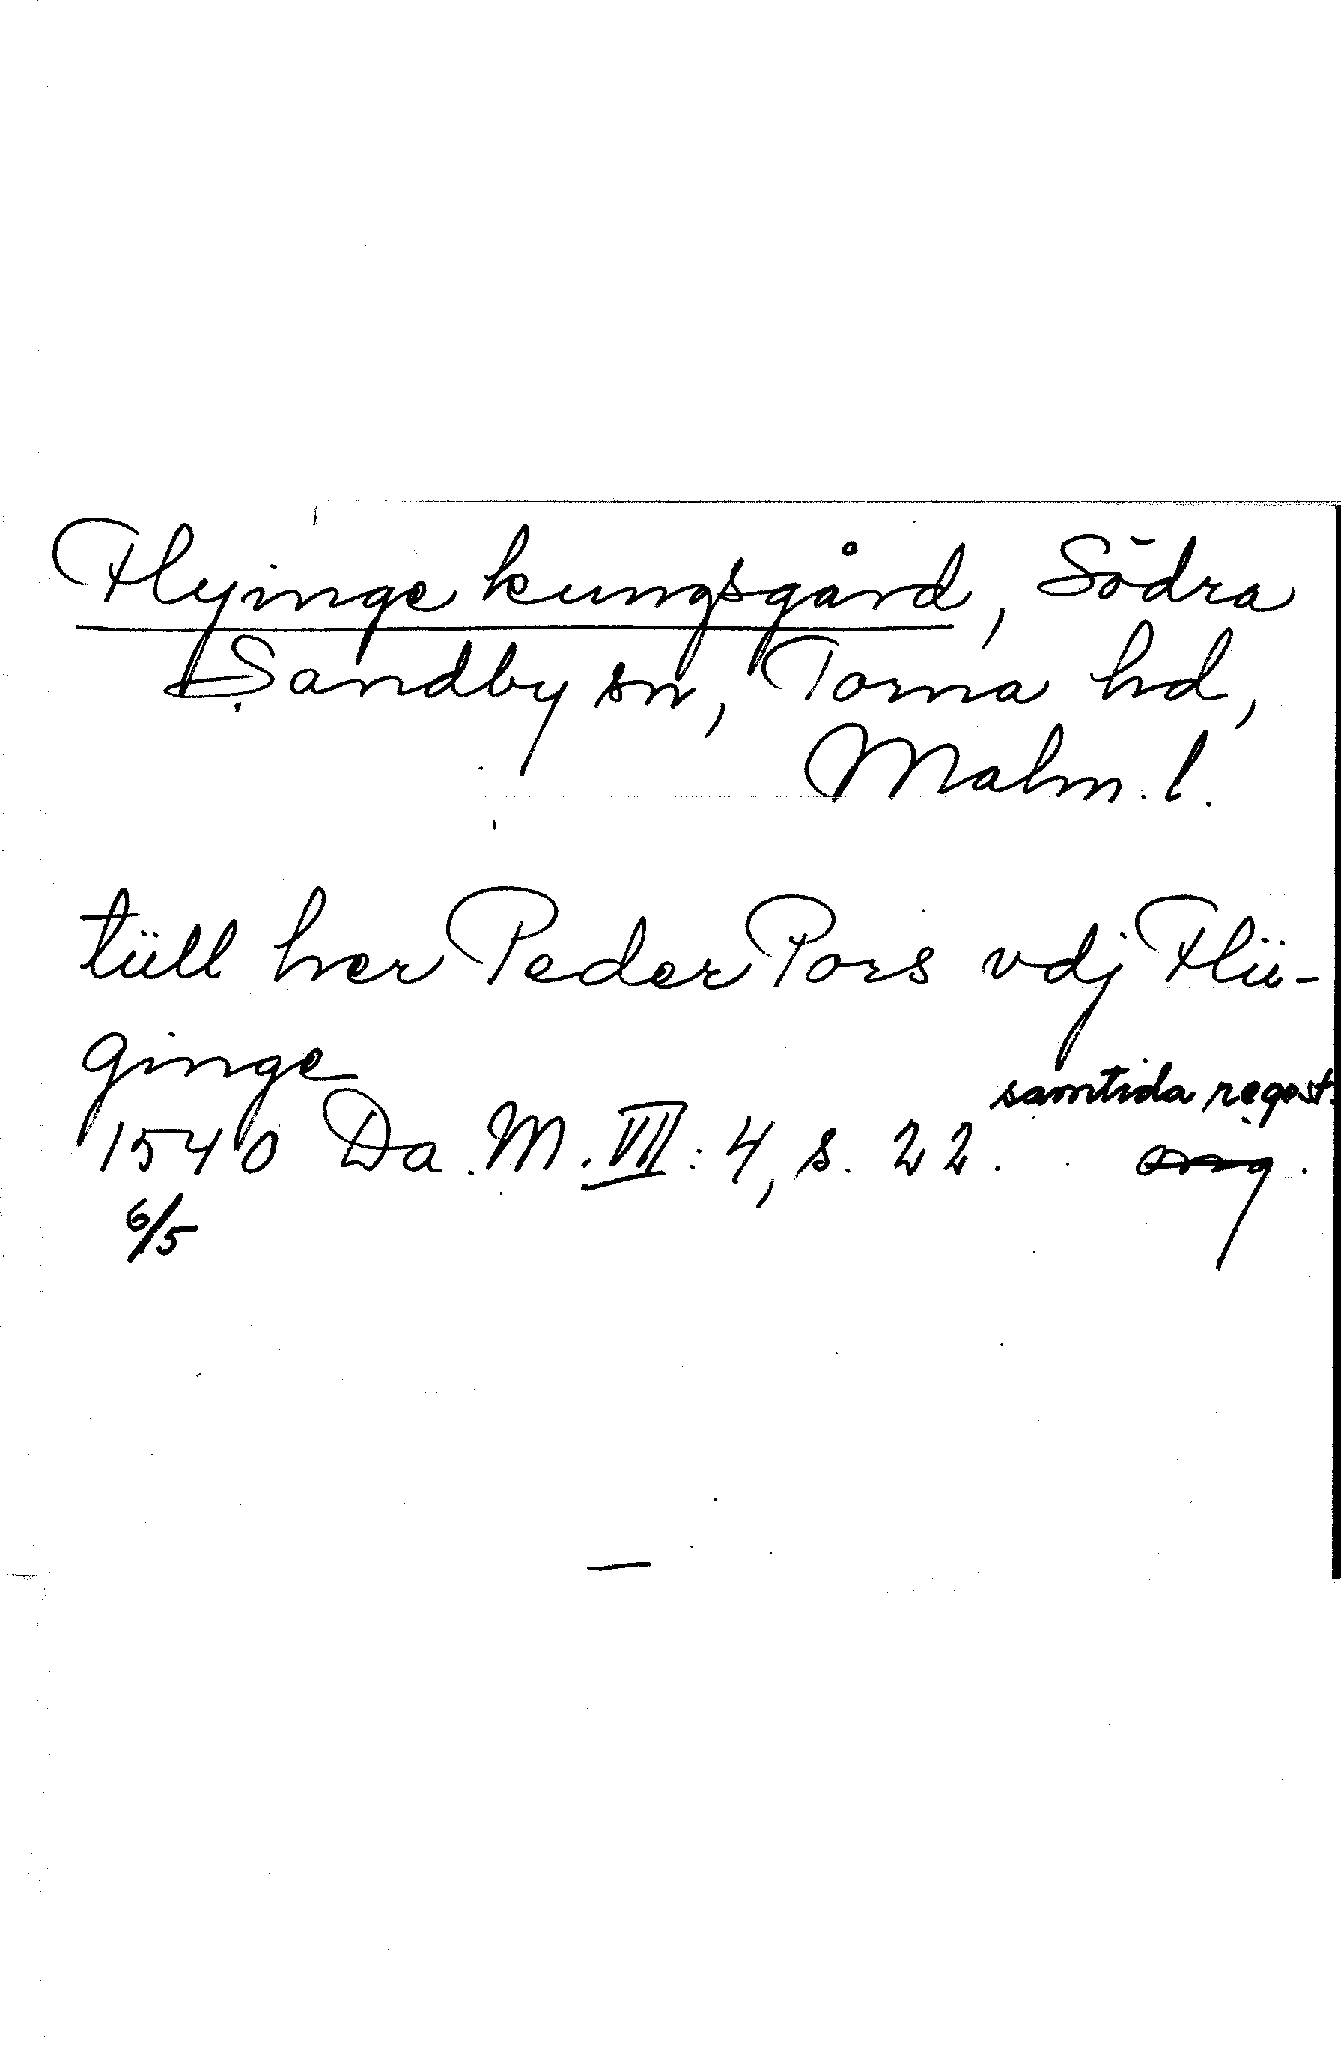 Flyinge kungsgård, Södra
Sandby sn, Torna hd,
Malm. l.
tüll her Peder Pors vdj Flü-
ginge
samtida regest.
1540 Da. M. VII: 4, s. 22. orig.
6/5